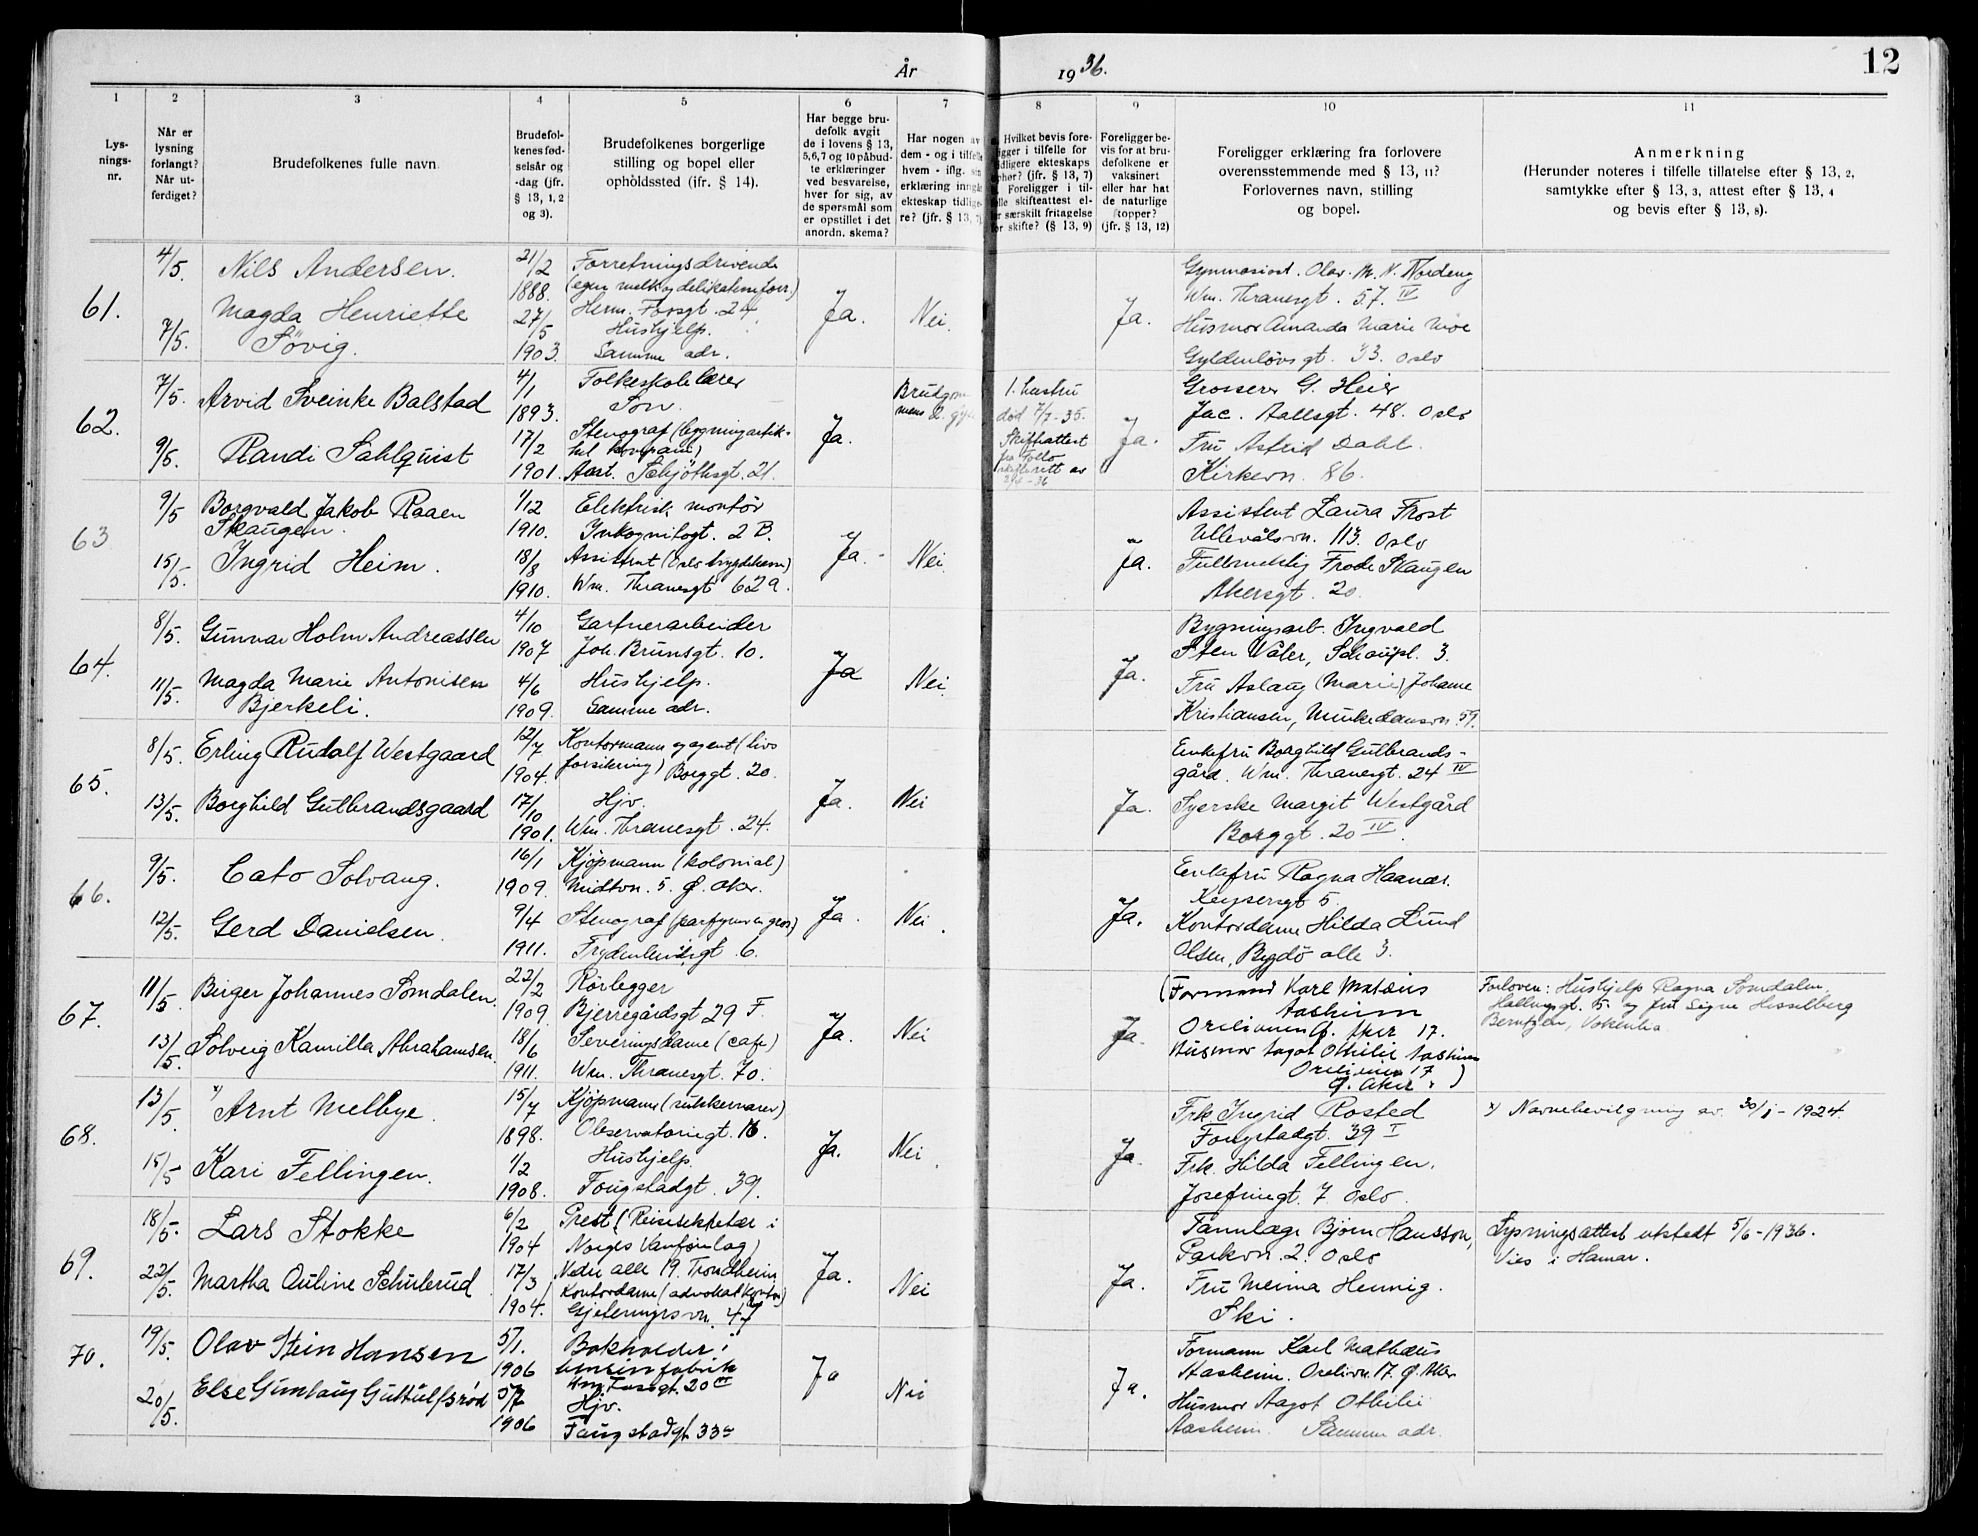 År 1936.
12
1 2 3 4 5 6 7 8 9 10 11
Lys-
nings-
nr.
Når er
lysning
forlangt?
Når ut-
ferdiget?
Brudefolkenes fulle navn.
Brudefol-
kenes fød-
selsår og
-dag (jfr.
§ 13, 1, 2
og 3).
Brudefolkenes borgerlige
stilling og bopel eller
opholdssted (jfr. § 14).
Har begge bru-
defolk avgit
de i lovens § 13,
5, 6, 7 og 10 påbud-
te erklæringer
ved besvarelse,
hver for sig, av
de spørsmål som
er opstillet i det
anordn. skema?
Har nogen av
dem - og i tilfelle
hvem - iflg. sin
erklæring inngått
ekteskap tidlige-
re? (jfr. § 13, 7)
Hvilket bevis fore-
ligger i tilfelle for
tidligere ekteskaps
ophør? (jfr. § 13, 7)
Foreligger i til-
felle skifteattest el-
ler særskilt fritagelse
for skifte? (§ 13, 9)
Foreligger be-
vis for at bru-
defolkene er
vaksinert
eller har hat
de naturlige
kopper?
(jfr. § 13, 12)
Foreligger erklæring fra forlovere
overensstemmende med § 13, 11?
Forlovernes navn, stilling
og bopel.
Anmerkning
(Herunder noteres i tilfelle tillatelse efter § 13, 2,
samtykke efter § 13, 3, attest efter § 13, 4
og bevis efter § 13, 8).
61.
4/5.
7/5.
Nils Andersen.
Magda Henriette
Søvig.
21/2
1888.
27/5
1903.
Forretningsdrivende
(egen melk og delikatesseforr.)
Herm. Fossgt. 24
Hushjelp.
Samme adr.
Ja.
Nei.
Ja.
Gymnasiast. Olav M. N. Nordeng
Wm. Thranesgt. 57. IV
Husmor Amanda Marie Moe
Gyldenløvsgt. 33. Oslo
62.
7/5.
9/5.
Arvid Sveinke Balstad
Randi Sahlquist
4/1
1893.
17/2
1901.
Folkeskolelærer
Son.
Stenograf (bygningartik-
kel kompani)
Aast. Schjøthsgt. 21.
Ja.
1. hustru
død 7/7-35.
Skifteattest
fra Follo
skifterett av
Ja.
Grosserer G. Heier
Jac. Aallsgt. 48. Oslo
Fru Astrid Dahl.
Kirkevn. 86.
63
9/5
15/5.
Borgvald Jakob Raaen
Skaugen.
Ingrid Heim.
1/12
1910.
18/8
1910.
Elektrisk montør
Inkognitogt. 2 B.
Assistent (Oslo trygdekasse)
Wm. Thranesgt 62 a.
Ja.
Nei.
Ja.
Assistent Laura Frost
Ullevålsvn. 113. Oslo
Fullmektig Frode Skaugen
Akersgt. 20.
64.
8/5.
11/5.
Gunnar Holm Andreassen
Magda Marie Antonisen
Bjerkeli.
4/10
1907
4/6
1909.
Gartnerarbeider
Joh. Brunsgt. 10.
Hushjelp.
Samme adr.
Ja
Nei.
Ja.
Bygningsarb. Ingvald
Sten Våler, Schoupl. 3.
Fru Aslaug (Marie) Johanne
Kristiansen, Munkedamsvn. 59.
65.
8/5.
13/5.
Erling Rudolf Westgaard
Borghild Gulbrandsgaard
12/7
1904.
17/10
1901.
Kontormann og agent (livs
forsikring) Borggt. 20.
Hjv.
Wm. Thranesgt. 24.
Ja.
Nei
Ja.
Enkefru Borghild Gulbrands-
gård. Wm. Thranesgt. 24 IV
Syerske Margit Westgård
Borggt. 20 IV.
66.
9/5.
12/5.
Cato Solvang.
Gerd Danielsen.
16/1
1909.
9/4
1911.
Kjøpmann (kolonial)
Midtvn. 5. Ø. Aker.
Stenograf (parfymeri en gros)
Frydenlundsgt. 6.
Ja.
Nei.
Ja.
Enkefru Ragna Haanæs.
Keysersgt 5.
Kontordame Hilda Lund
Olsen, Bygdø alle 3.
67.
11/5
13/5.
Birger Johannes Somdalen.
Solveig Kamilla Abrahamsen.
22/2
1909.
18/6
1911.
Rørlegger
Bjerregårdsgt 29 F.
Severingsdame (cafe)
Wm. Thranesgt. 70.
Ja.
Nei
Ja.
(Formann Karl Matæus
Aasheim
Orelivnen Ø. Aker 17.
Husmor Aagot Othilie Aasheim
Orelivnen 17
Ø. Aker.)
Forlover: Hushjelp Ragna Somdalen,
Hallingsgt. 5. og fru Signe Hesselberg
Berntzen, Voksenlia.
68.
13/5.
15/5
x) Arnt Melbye.
Kari Fellingen.
15/7
1898.
1/2
1908.
Kjøpmann (sukkervarer)
Observatoriegt. 16.
Hushjelp.
Fougstadgt. 39.
Ja.
Nei.
Ja.
Frk Ingrid Rosted
Fougstadgt. 39 I
Frk. Hilda Fellingen.
Josefinegt. 7 Oslo.
x) Navnebevilgning av 30/1-1924.
69.
18/5.
22/5.
Lars Stokke
Martha Ouline Schulerud
6/2
1904
17/3
1904.
Prest (Reisesekretær i
Norges Vanførelag)
Nedre alle 19. Trondheim
Kontordame (advokatkontor)
Gjeteringsvn. 47
Ja.
Nei
Ja.
Tannlæge Bjørn Hansson,
Parkvn. 2. Oslo
Fru Meima Hennig.
Ski.
Lysningsattest utstedt 5/6-1936.
Vies i Hamar.
70.
19/5.
20/5.
Olav Stein Hansen
Else Gunlaug Guttulfsrød
5/1.
1906
5/7
1906
Bokholder i
bensinfabrik
Hjv.
Fougstadgt 33
Ja
Nei
Ja.
Formann Karl Mathæus
Aasheim. Orelivn. 17. Ø. Aker
Husmor Aagot Othilie
Aasheim. Samme adr.